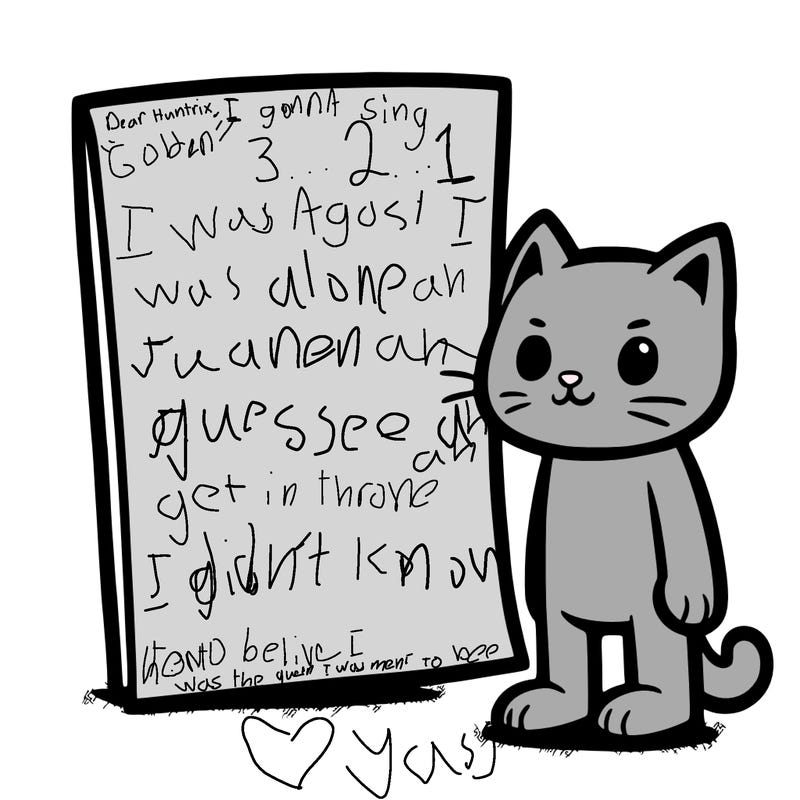 Dear Huntrix, I gonna sing
"Golden" 3... 2... 1
I was Agost I
was alone an
ruanen an
guessee an
an
get in throne
I didn't know
how to belive I
was the queen I was ment to bee
♡ yas